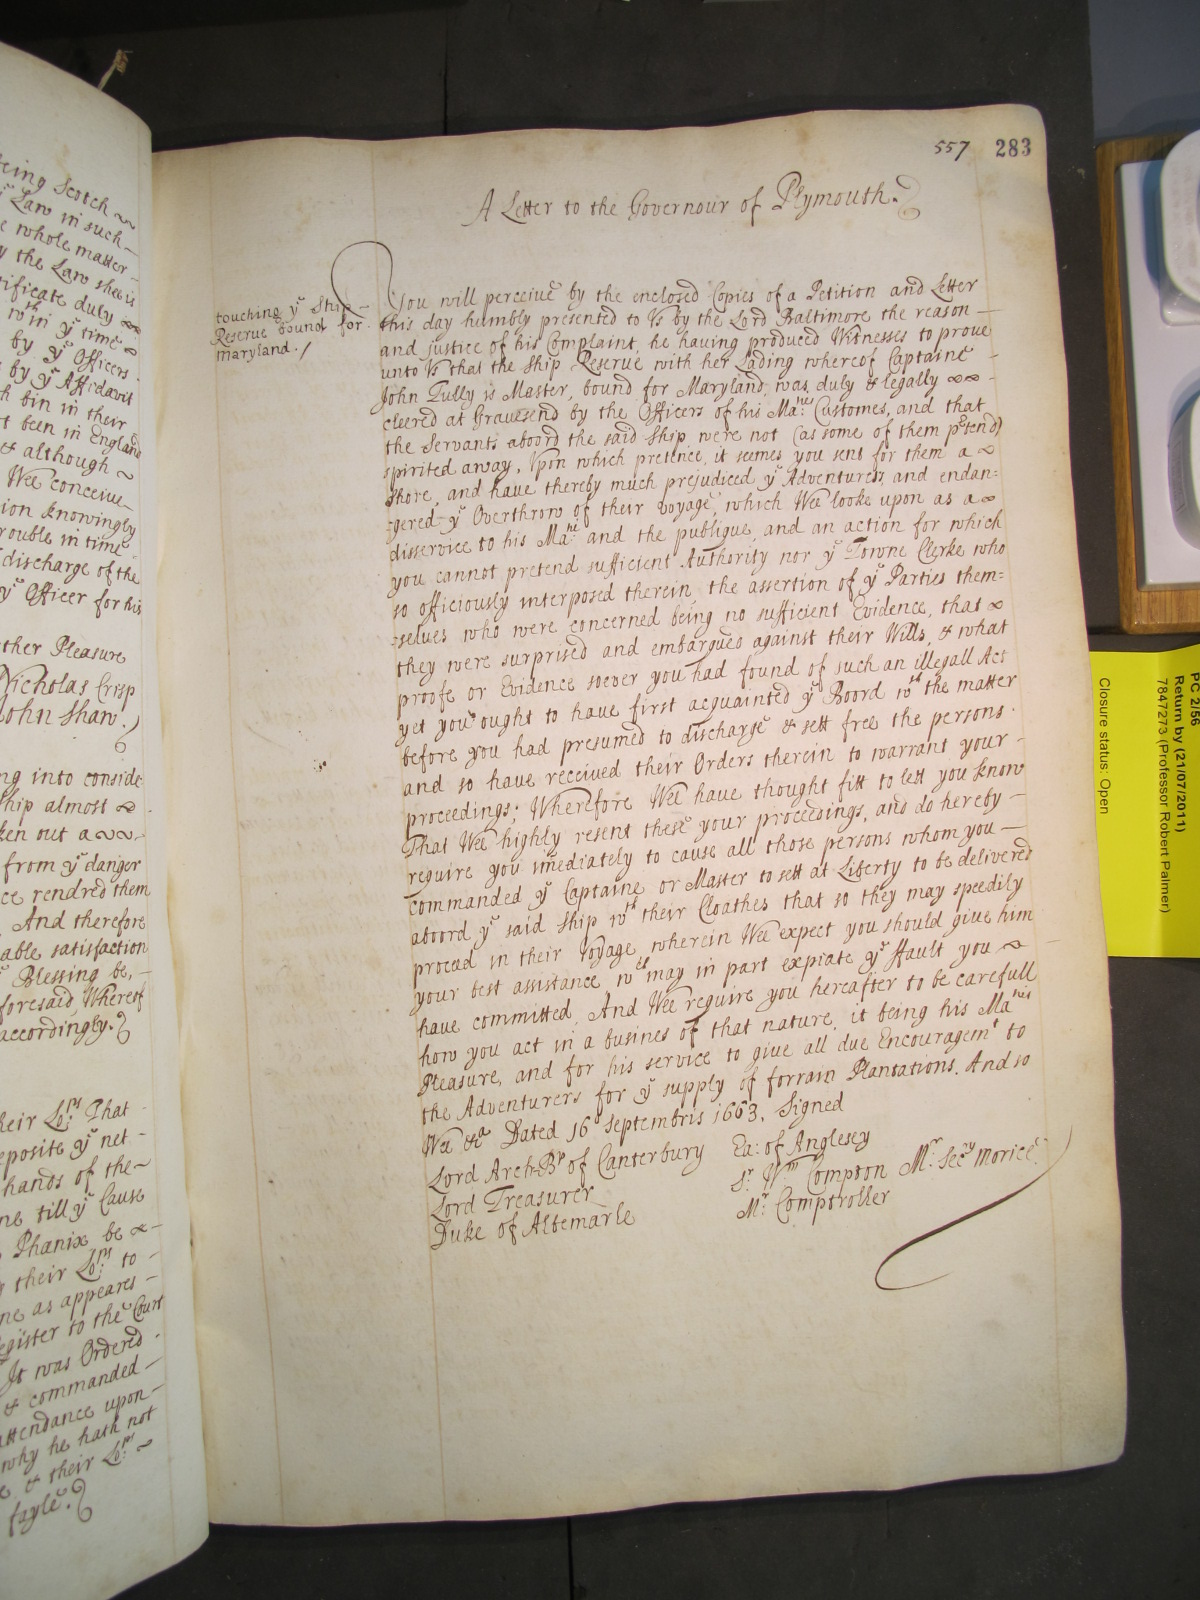 557 283
A Letter to the Governour of Plymouth.
touching yͤ Ship
Reserve bound for
maryland. /
You will perceive by the enclosed Copies of a Petition and Letter
this day humbly presented to Vs by the Lord Baltimore the reason
and justice of his Complaint, he having produced Witnesses to prove
unto Vs that the Ship Reserve with her Lading whereof Captaine
John Tully is Master, bound for Maryland, was duly & legally
cleered at Gravesend by the Officers of his Maᵗⁱᵉˢ Customes, and that
the Servants aboord the said Ship were not (as some of them p'tend)
spirited away, Vpon which pretence, it seemes you sent for them a
shore, and have thereby much prejudiced yͤ Adventurers, and endan=
=gered yͤ Overthrow of their voyage, which Wee looke upon as a
disservice to his Maᵗⁱᵉ and the publique, and an action for which
you cannot pretend sufficient Authority nor yͤ Towne Clerke who
so officiously interposed therein, the assertion of yͤ Parties them=
=selves who were concerned being no sufficient Evidence, that
they were surprised and embargued against their Wills, & what
proofe or Evidence soever you had found of such an illegall Act
yet you ought to have first acquainted yͤ Boord wᵗʰ the matter
before you had presumed to discharge & sett free the persons
and so have received their Orders therein to warrant your
proceedings; Wherefore Wee have thought fitt to lett you know
That Wee highly resent these your proceedings, and do hereby
require you imediately to cause all those persons whom you
commanded yͤ Captaine or Master to sett at Liberty to be delivered
aboord yͤ said Ship wᵗʰ their Cloathes that so they may speedily
proceed in their Voyage, wherein Wee expect you should give him
your best assistance, wᶜʰ may in part expiate yͤ ffault you
have committed, And Wee require you hereafter to be carefull
how you act in a busines of that nature, it being his Maᵗⁱᵉˢ
Pleasure, and for his service to give all due Encouragemᵗ to
the Adventurers for yͤ supply of forrain Plantations. And so
Wee &ᶜᵃ Dated 16 Septembris 1663. Signed
Lord Arch-Bᵖ of Canterbury Ea: of Anglesey
Lord Treasurer Sʳ Wᵐ Compton Mʳ Secʳʸ Morice
Duke of Albemarle Mʳ Comptroller
teing Scotch
yͤ Law in such
e whole matter
y the Law shee is
tificate duly
wᵗʰin yͤ time
by yͤ Officers
by yͤ Affidavit
h bin in their
t been in England
& although
Wee conceive
ion knowingly
rouble in time
discharge of the
yͤ Officer for his
ther Pleasure
Nicholas Crisp
John Shaw.
ng into conside
hip almost
ken out a
from yͤ danger
ce rendred them
And therefore
able satisfaction
Blessing be,
foresaid, Whereof
accordingly.
heir Loᵖˢ That
eposite yͤ net
hands of the
ne till yͤ Cause
Phœnix be
g their Loᵖˢ to
ne as appeares
egister to the Court
It was Ordered
& commanded
attendance upon
why he hath not
e & their Loᵖˢ
fayle.
PC 2/56
Return by (21/07/2011)
7847273 (Professor Robert Palmer)
Closure status: Open